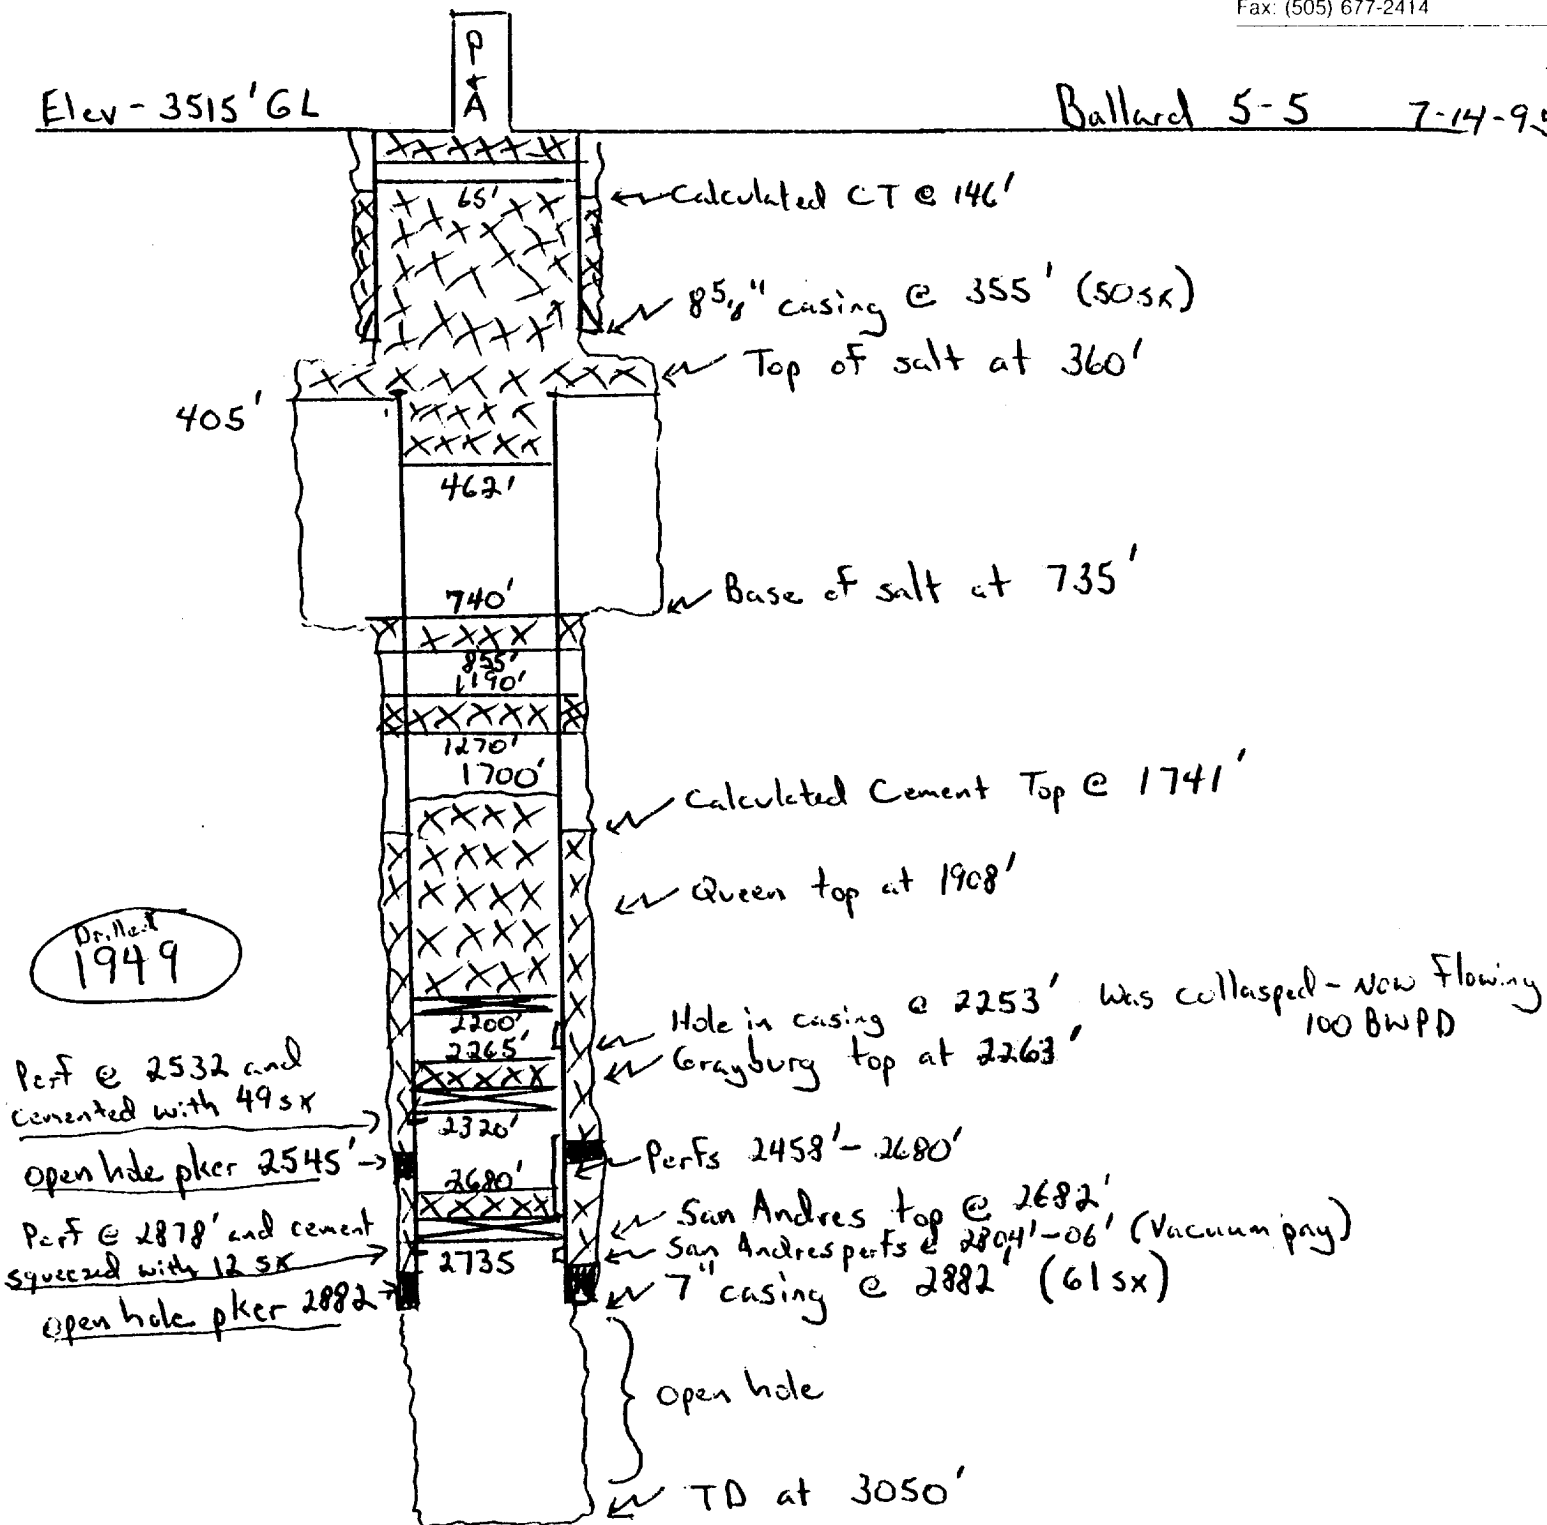 Fax: (505) 677-2414
P
+
A
Elev - 3515' GL
Ballard 5-5
7-14-9
65'
Calculated CT @ 146'
8 5/8" casing @ 355' (50sx)
Top of salt at 360'
405'
462'
Base of salt at 735'
740'
855'
1190'
1270'
1700'
Calculated Cement Top @ 1741'
Queen top at 1908'
Drilled
1949
2200'
Hole in casing @ 2253' Was collasped - Now Flowing
100 BWPD
2265'
Grayburg top at 2263'
Perf @ 2532 and
cemented with 49 sx
2320'
open hole pker 2545'
Perfs 2458' - 2680'
2680'
San Andres top @ 2682'
Perf @ 2878' and cement
squeezed with 12 sx
San Andres perfs @ 2804'-06' (Vacuum pay)
2735
open hole pker 2882
7" casing @ 2882' (61 sx)
open hole
TD at 3050'